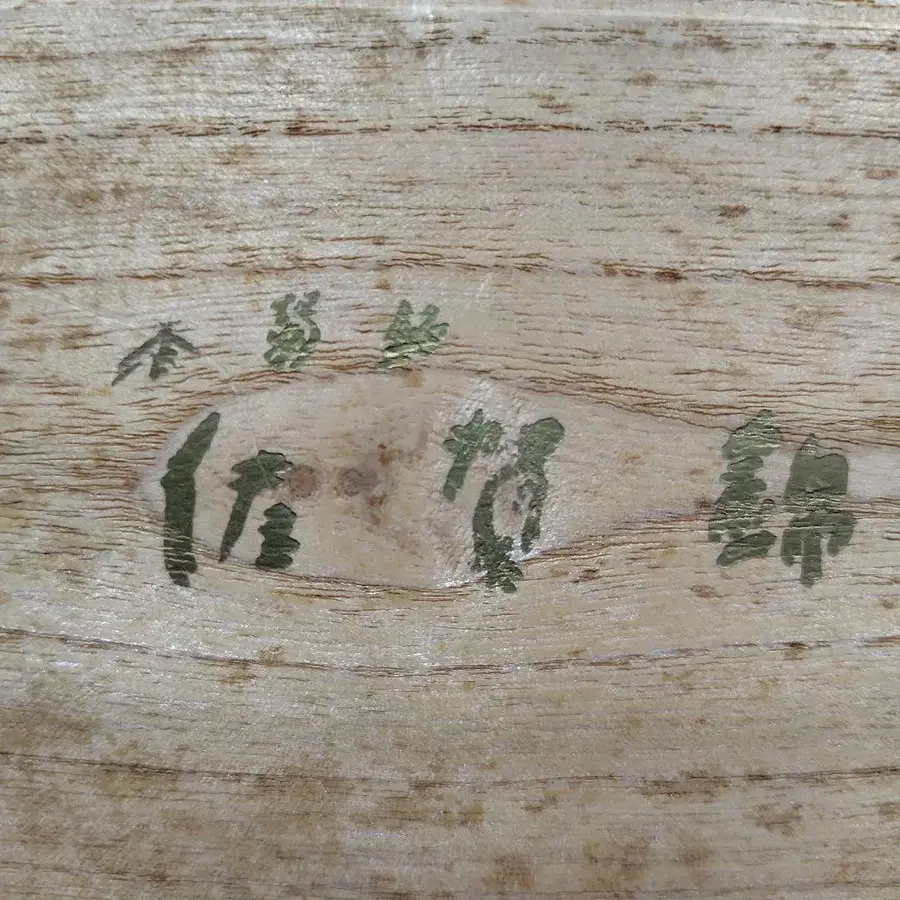 本
佐賀錦